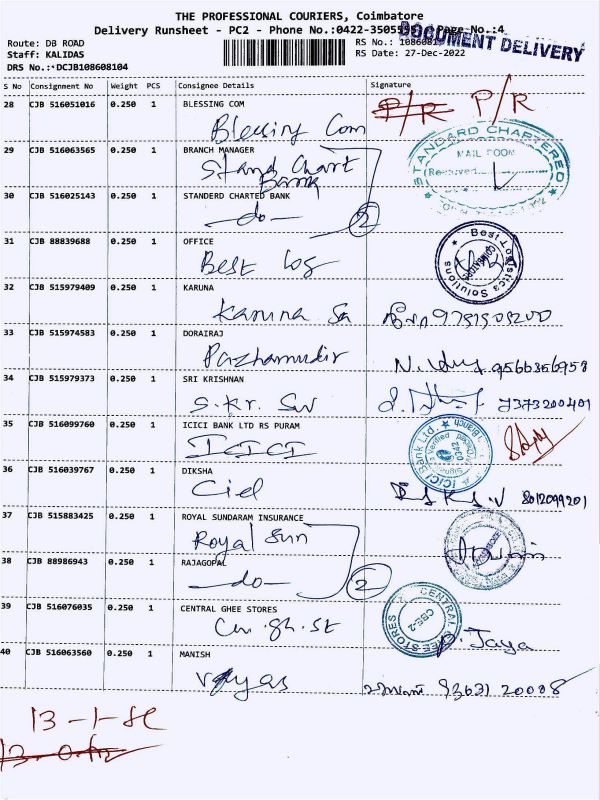 THE PROFESSIONAL COURIERS, Coimbatore
Delivery Runsheet - PC2 - Phone No.:0422-3505 Page No.:4
DOCUMENT DELIVERY
Route: DB ROAD RS No.: 108608
Staff: KALIDAS RS Date: 27-Dec-2022
DRS No.:*DCJB108608104
S No Consignment No Weight PCS Consignee Details Signature
28 CJB 516051016 0.250 1 BLESSING COM P/R P/R
Blessing Com
STANDARD CHARTERED
MAIL ROOM
Received
29 CJB 516063565 0.250 1 BRANCH MANAGER
Stand Chart
Bank
30 CJB 516025143 0.250 1 STANDERD CHARTED BANK
-do- 2
31 CJB 88839688 0.250 1 OFFICE
Best Log
Best Logistics Solutions
32 CJB 515979409 0.250 1 KARUNA
Karuna Sa
33 CJB 515974583 0.250 1 DORAIRAJ
Pazhamudir 9566356958
34 CJB 515979373 0.250 1 SRI KRISHNAN
S.Kr. Sw 7373200401
35 CJB 516099760 0.250 1 ICICI BANK LTD RS PURAM
ICICI
ICICI Bank Ltd.
36 CJB 516039767 0.250 1 DIKSHA
Ciel 8012099201
37 CJB 515883425 0.250 1 ROYAL SUNDARAM INSURANCE
Royal Sun
38 CJB 88986943 0.250 1 RAJAGOPAL
-do- 2
39 CJB 516076035 0.250 1 CENTRAL GHEE STORES
Cen.gh.st
CENTRAL GHEE STORES
CBE-2
Jaya
40 CJB 516063560 0.250 1 MANISH
Vyas 93631 20008
13-1-